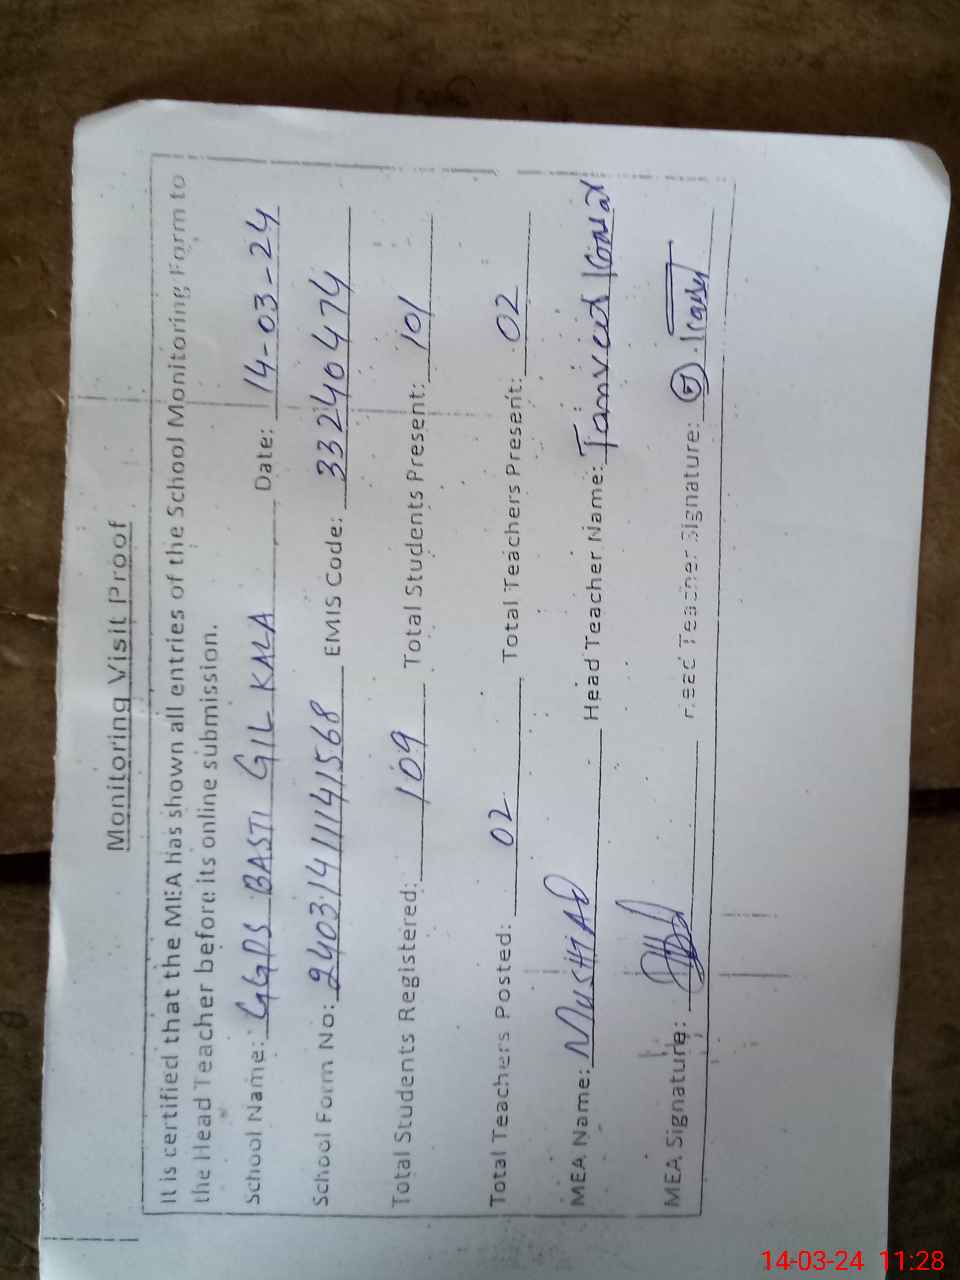 Monitoring Visit Proof
It is certified that the MEA has shown all entries of the School Monitoring Form to
the Head Teacher before its online submission.
School Name: GGPS BASTI GIL KALA Date: 14-03-24
School Form No: 2403141141568 EMIS Code: 33240474
Total Students Registered: 109 Total Students Present: 101
Total Teachers Posted: 02 Total Teachers Present: 02
MEA Name: Head Teacher Name: Tanveer
MEA Signature: Head Teacher Signature:
14-03-24 11:28